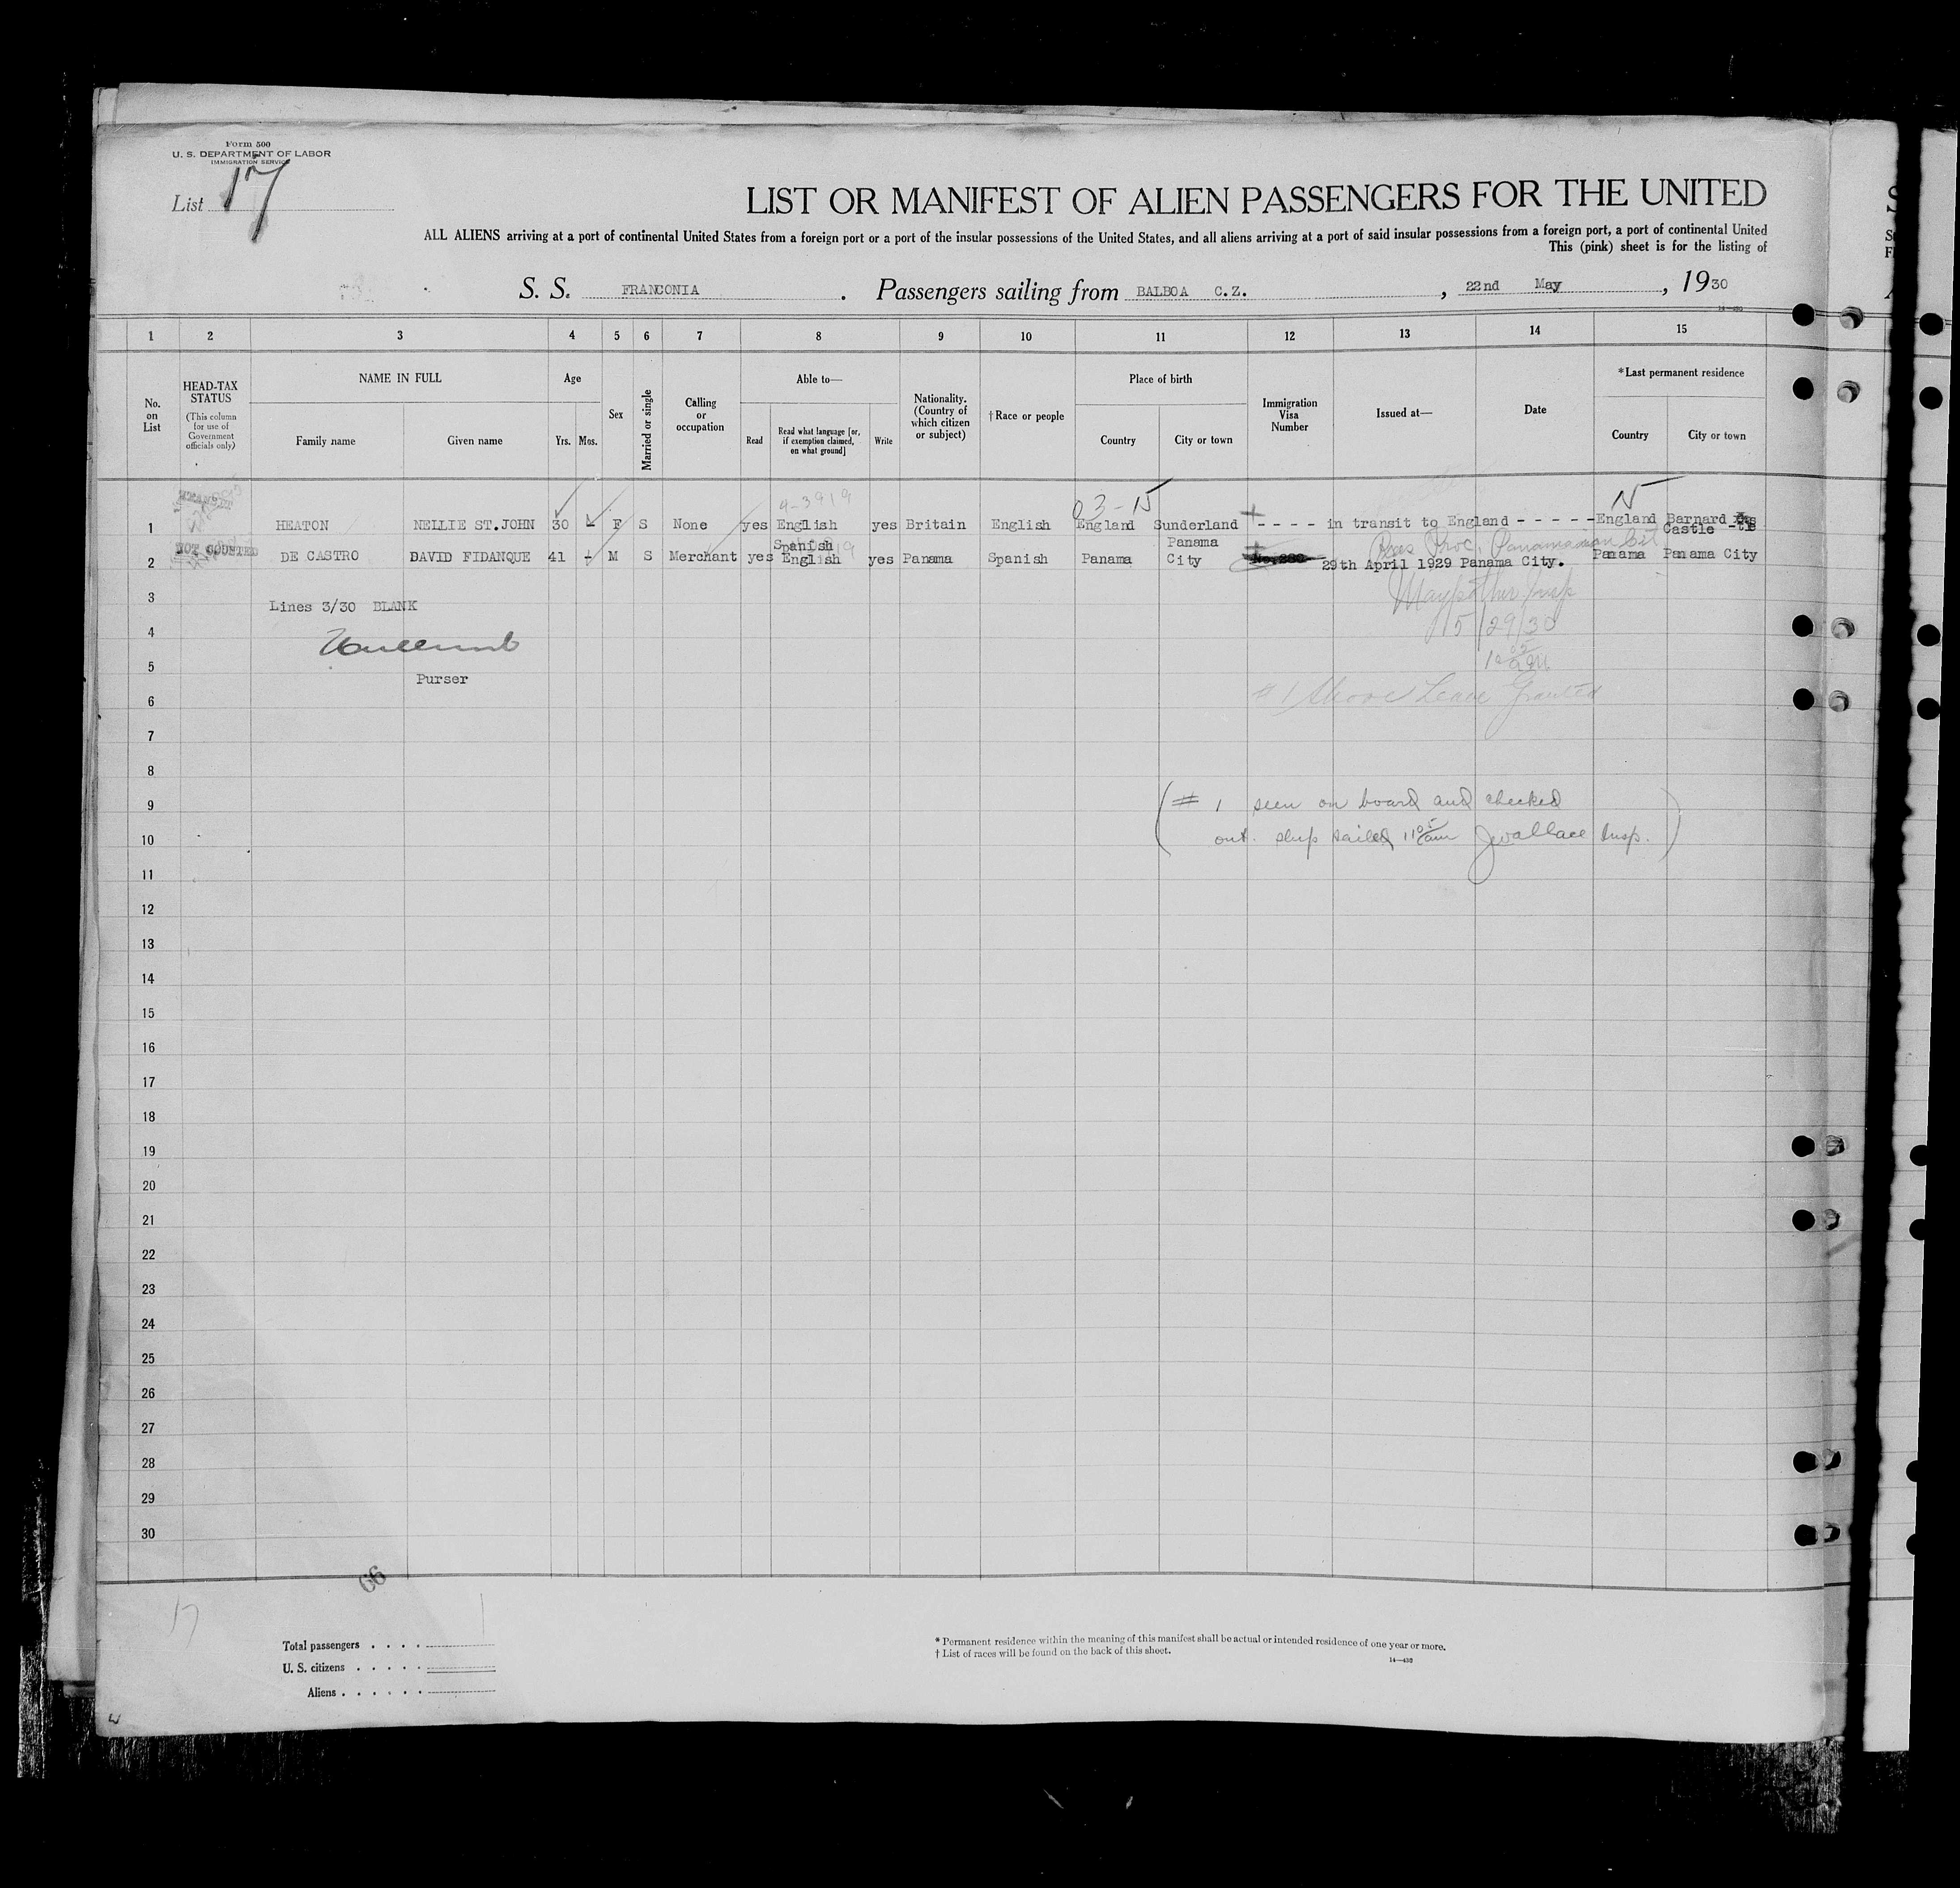 Form 500
U. S. DEPARTMENT OF LABOR
IMMIGRATION SERVICE
List 17
LIST OR MANIFEST OF ALIEN PASSENGERS FOR THE UNITED
ALL ALIENS arriving at a port of continental United States from a foreign port or a port of the insular possessions of the United States, and all aliens arriving at a port of said insular possessions from a foreign port, a port of continental United
This (pink) sheet is for the listing of
S. S. FRANCONIA . Passengers sailing from BALBOA C.Z. , 22nd May , 1930
14—430
1 2 3 4 5 6 7 8 9 10 11 12 13 14 15
No. on List
HEAD-TAX STATUS
(This column for use of Government officials only)
NAME IN FULL
Family name
Given name
Age
Yrs.
Mos.
Sex
Married or single
Calling or occupation
Able to—
Read
Read what language [or, if exemption claimed, on what ground]
Write
Nationality. (Country of which citizen or subject)
† Race or people
Place of birth
Country
City or town
Immigration Visa Number
Issued at—
Date
*Last permanent residence
Country
City or town
9-3919
03-15
1 HEATON NELLIE ST.JOHN 30 - F S None yes English yes Britain English England Sunderland - - - - in transit to England - - - - - England Barnard Castle
2 NOT COUNTED DE CASTRO DAVID FIDANQUE 41 - M S Merchant yes Spanish English yes Panama Spanish Panama Panama City No. 29th April 1929 Panama City. Panama Panama City
3 Lines 3/30 BLANK
4
5/29/30
5
Purser
6 #1 Shore Leave Granted
7
8
9 (# 1 seen on board and checked
10 out. ship sailed 11 05 am JWallace Insp.)
11
12
13
14
15
16
17
18
19
20
21
22
23
24
25
26
27
28
29
30
66
17
Total passengers . . . .
U. S. citizens . . . . .
Aliens . . . . . .
* Permanent residence within the meaning of this manifest shall be actual or intended residence of one year or more.
† List of races will be found on the back of this sheet.
14—430